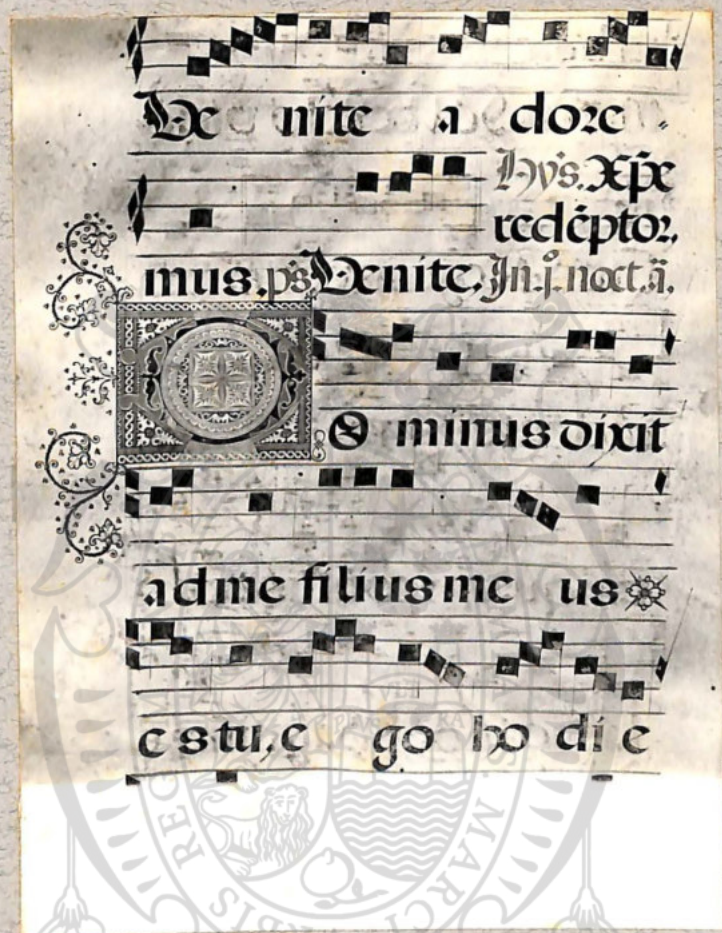 Ve nite a dore
Hỹs. Xp̄e
redēptor,
mus. ps̄ Venite. In .j. noct. ā.
D O minus dixit
ad me filius me us
es tu, e go ho di e